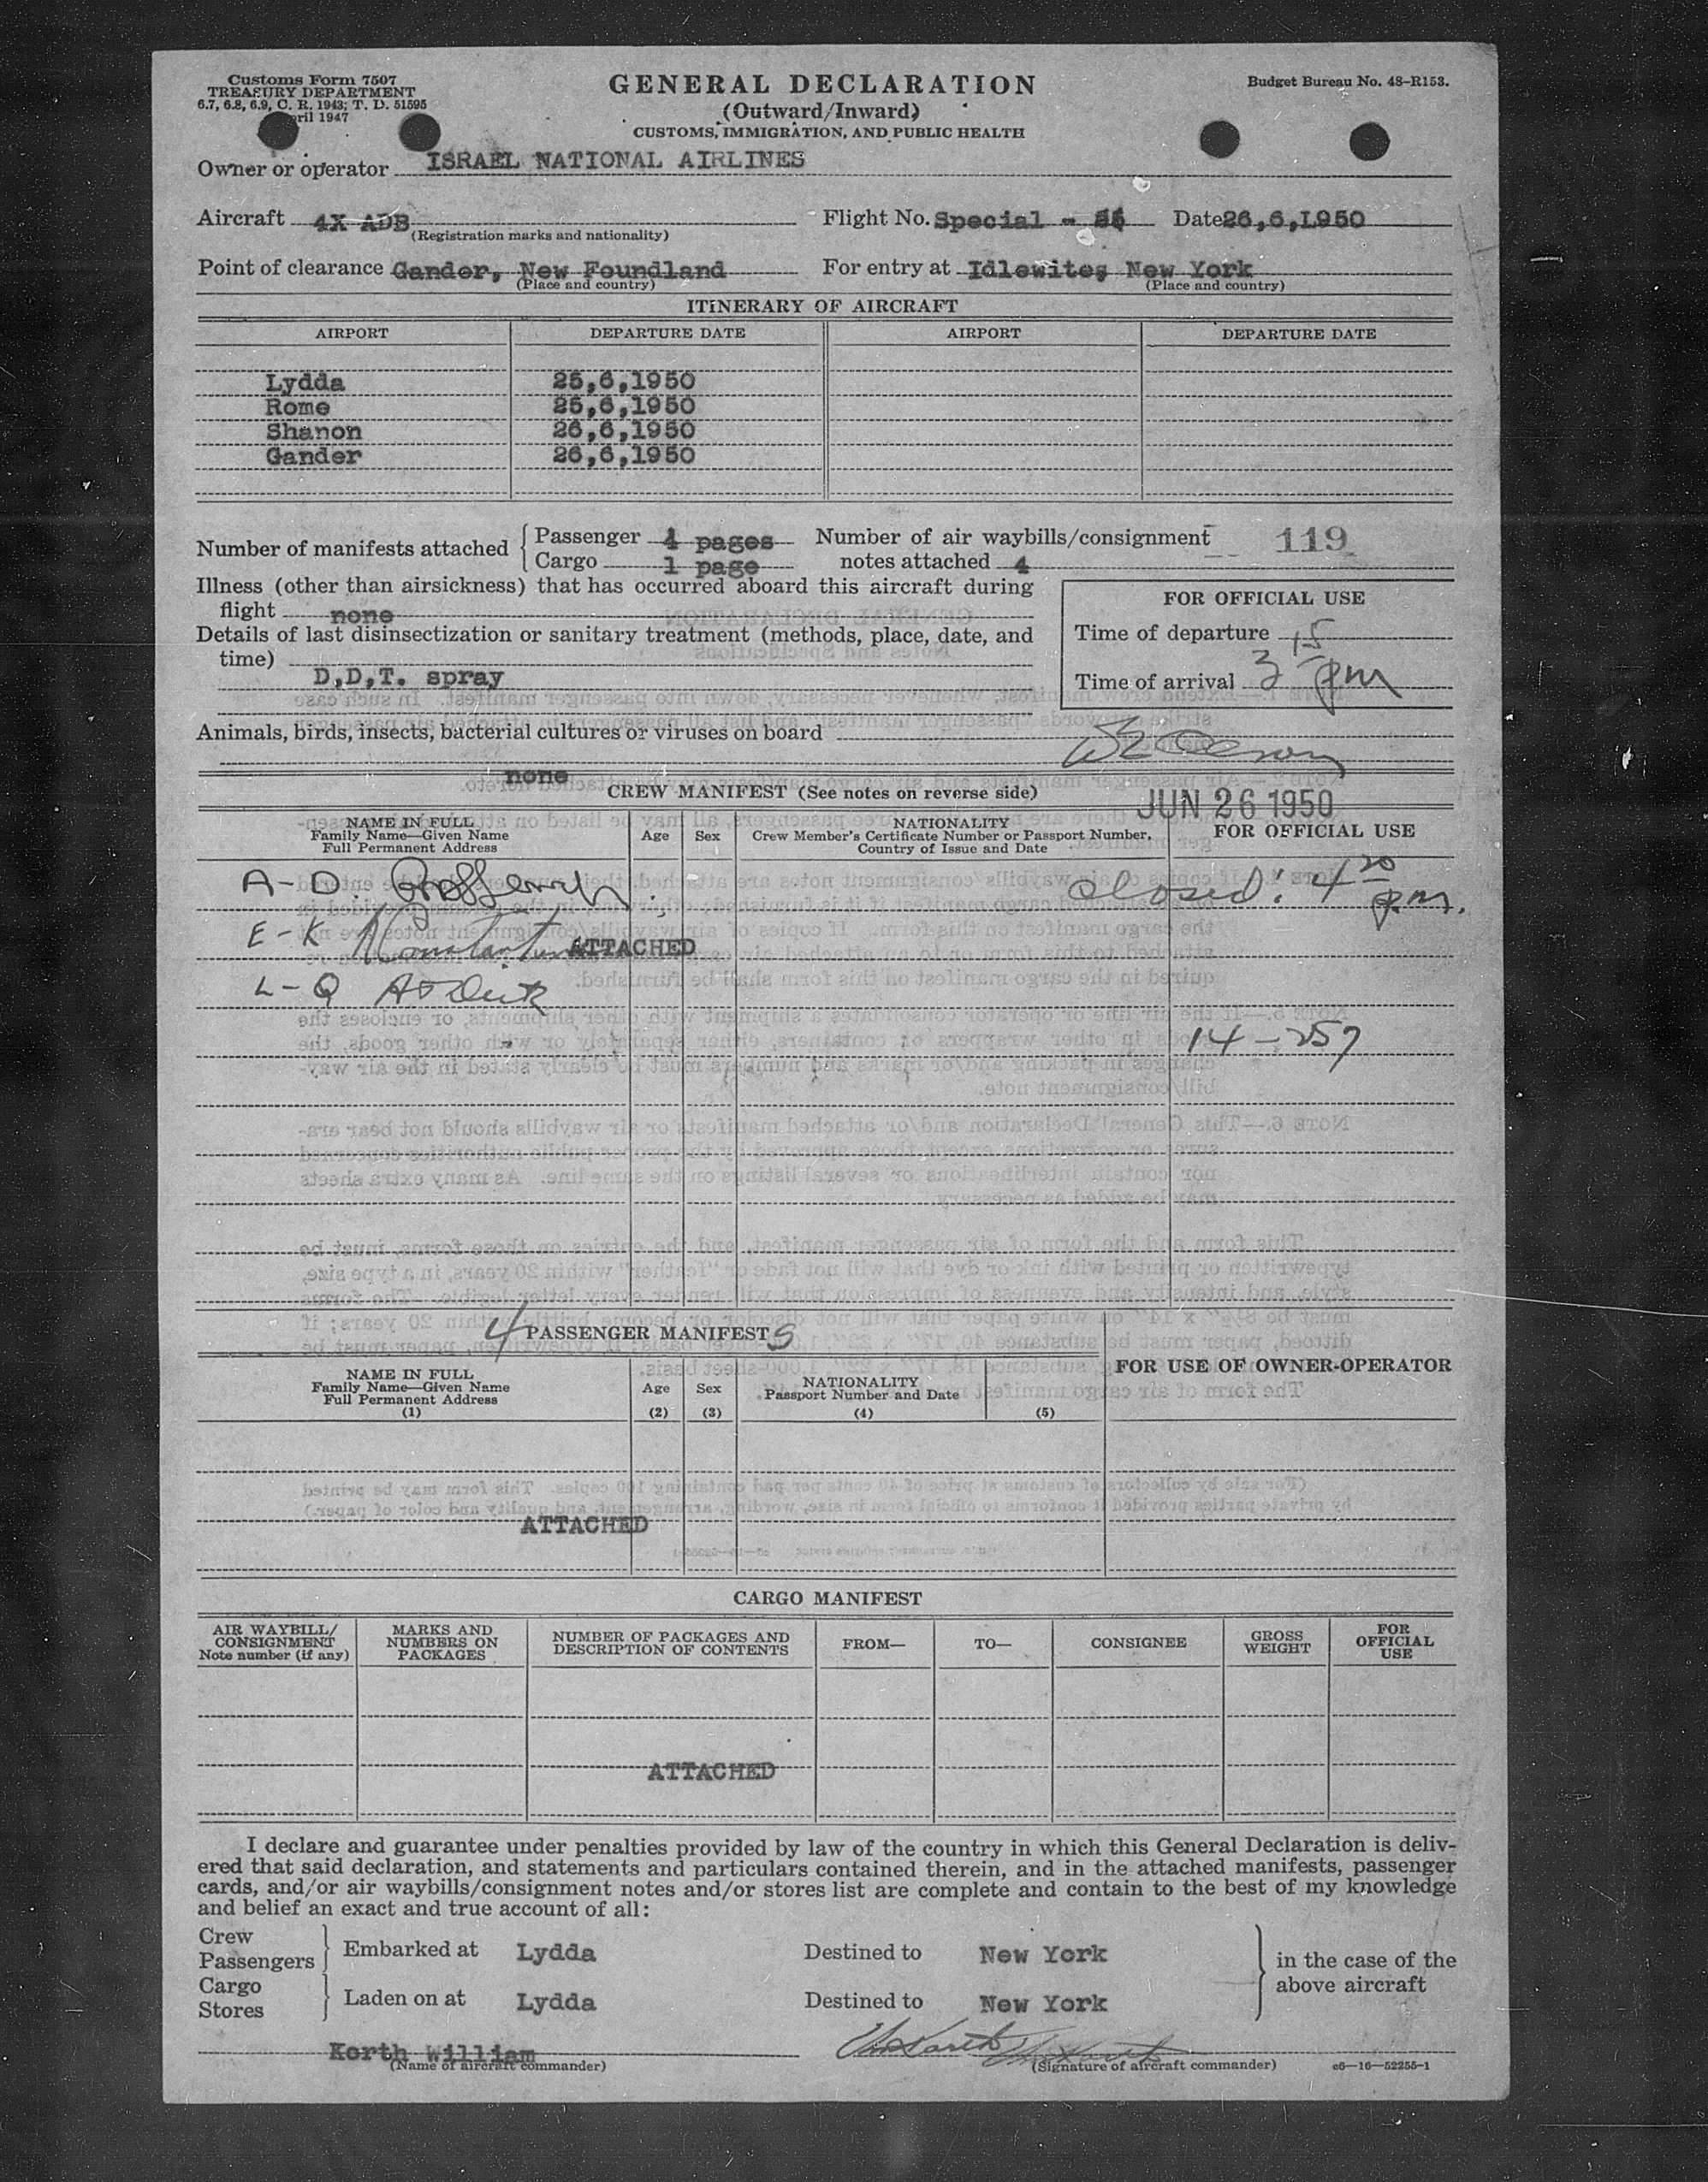 Customs Form 7507
TREASURY DEPARTMENT
6.7, 6.8, 6.9, C. R. 1943; T. D. 51595
April 1947
GENERAL DECLARATION
(Outward/Inward)
CUSTOMS, IMMIGRATION, AND PUBLIC HEALTH
Budget Bureau No. 48-R153.
Owner or operator ISRAEL NATIONAL AIRLINES
Aircraft 4X ADB Flight No. Special - Date 26,6,L950
(Registration marks and nationality)
Point of clearance Gander, New Foundland For entry at Idlewite, New York
(Place and country) (Place and country)
ITINERARY OF AIRCRAFT
AIRPORT DEPARTURE DATE AIRPORT DEPARTURE DATE
Lydda 25,6,1950
Rome 25,6,1950
Shanon 26,6,1950
Gander 26,6,1950
Number of manifests attached Passenger 4 pages Number of air waybills/consignment 119
Cargo 1 page notes attached 4
Illness (other than airsickness) that has occurred aboard this aircraft during
flight none
Details of last disinsectization or sanitary treatment (methods, place, date, and
time)
D,D,T. spray
FOR OFFICIAL USE
Time of departure
Time of arrival 3 15 pm
Animals, birds, insects, bacterial cultures or viruses on board
none
CREW MANIFEST (See notes on reverse side)
JUN 26 1950
NAME IN FULL
Family Name—Given Name
Full Permanent Address
Age Sex
NATIONALITY
Crew Member's Certificate Number or Passport Number,
Country of Issue and Date
FOR OFFICIAL USE
A-D
closed! 4 20 p.m.
E-K ATTACHED
L-Q
14-257
4 PASSENGER MANIFESTS
NAME IN FULL
Family Name—Given Name
Full Permanent Address
(1)
Age
(2)
Sex
(3)
NATIONALITY
Passport Number and Date
(4) (5)
FOR USE OF OWNER-OPERATOR
ATTACHED
CARGO MANIFEST
AIR WAYBILL/
CONSIGNMENT
Note number (if any)
MARKS AND
NUMBERS ON
PACKAGES
NUMBER OF PACKAGES AND
DESCRIPTION OF CONTENTS
FROM—
TO—
CONSIGNEE
GROSS
WEIGHT
FOR
OFFICIAL
USE
ATTACHED
I declare and guarantee under penalties provided by law of the country in which this General Declaration is deliv-
ered that said declaration, and statements and particulars contained therein, and in the attached manifests, passenger
cards, and/or air waybills/consignment notes and/or stores list are complete and contain to the best of my knowledge
and belief an exact and true account of all:
Crew
Passengers Embarked at Lydda Destined to New York in the case of the
Cargo above aircraft
Stores Laden on at Lydda Destined to New York
Korth William
(Name of aircraft commander) (Signature of aircraft commander) c6—16—52255-1